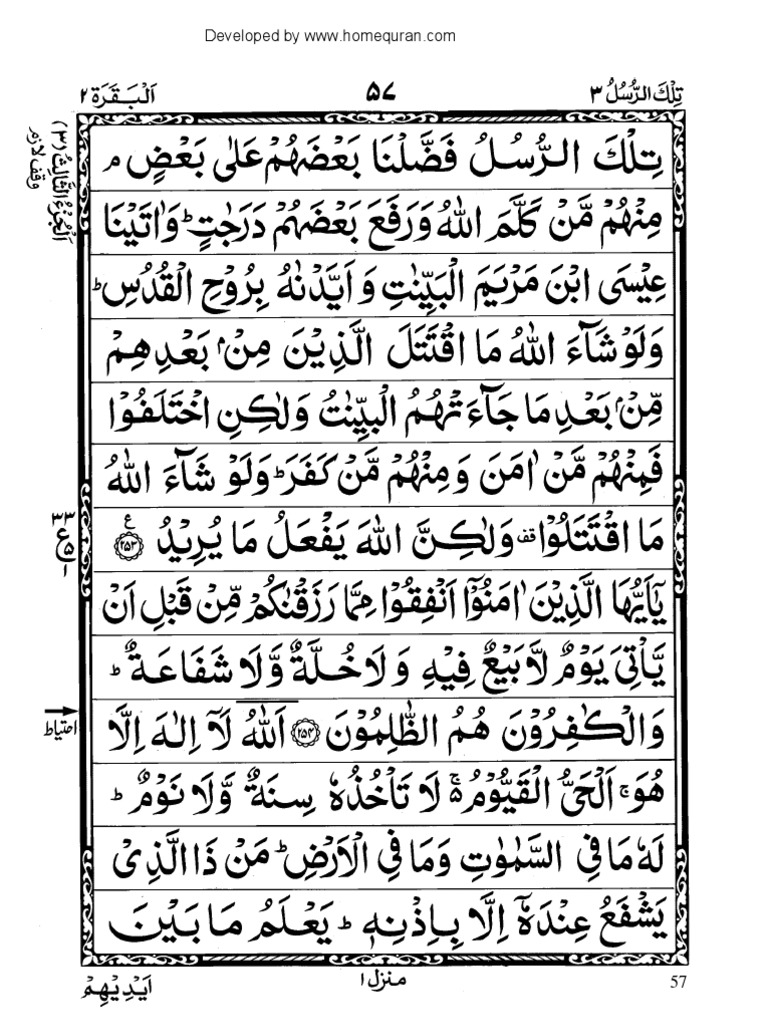 Developed by www.homequran.com
تِلْكَ الرُّسُلُ ٣
٥٧
اَلْبَقَرَة ٢
تِلْكَ الرُّسُلُ فَضَّلْنَا بَعْضَهُمْ عَلٰى بَعْضٍ ۘ
مِنْهُمْ مَّنْ كَلَّمَ اللّٰهُ وَرَفَعَ بَعْضَهُمْ دَرَجٰتٍ ؕ وَاٰتَيْنَا
عِيْسَى ابْنَ مَرْيَمَ الْبَيِّنٰتِ وَاَيَّدْنٰهُ بِرُوْحِ الْقُدُسِ ؕ
وَلَوْ شَآءَ اللّٰهُ مَا اقْتَتَلَ الَّذِيْنَ مِنْۢ بَعْدِهِمْ
مِّنْۢ بَعْدِ مَا جَآءَتْهُمُ الْبَيِّنٰتُ وَلٰكِنِ اخْتَلَفُوْا
فَمِنْهُمْ مَّنْ اٰمَنَ وَمِنْهُمْ مَّنْ كَفَرَ ؕ وَلَوْ شَآءَ اللّٰهُ
مَا اقْتَتَلُوْا قف وَلٰكِنَّ اللّٰهَ يَفْعَلُ مَا يُرِيْدُ ع ﴿٢٥٣﴾
يٰٓاَيُّهَا الَّذِيْنَ اٰمَنُوْٓا اَنْفِقُوْا مِمَّا رَزَقْنٰكُمْ مِّنْ قَبْلِ اَنْ
يَّاْتِىَ يَوْمٌ لَّا بَيْعٌ فِيْهِ وَلَا خُلَّةٌ وَّلَا شَفَاعَةٌ ؕ
وَالْكٰفِرُوْنَ هُمُ الظّٰلِمُوْنَ ﴿٢٥٤﴾ اَللّٰهُ لَآ اِلٰهَ اِلَّا
هُوَ ۚ اَلْحَىُّ الْقَيُّوْمُ ۚ۬ لَا تَاْخُذُهٗ سِنَةٌ وَّلَا نَوْمٌ ؕ
لَهٗ مَا فِى السَّمٰوٰتِ وَمَا فِى الْاَرْضِ ؕ مَنْ ذَا الَّذِىْ
يَشْفَعُ عِنْدَهٗٓ اِلَّا بِاِذْنِهٖ ؕ يَعْلَمُ مَا بَيْنَ
اَلْجُزْءُ الثَّالِثُ (٣)
وقف لازم
٣٣
ع
٥
١
احتياط
منزل ١
اَيْدِيْهِمْ
57